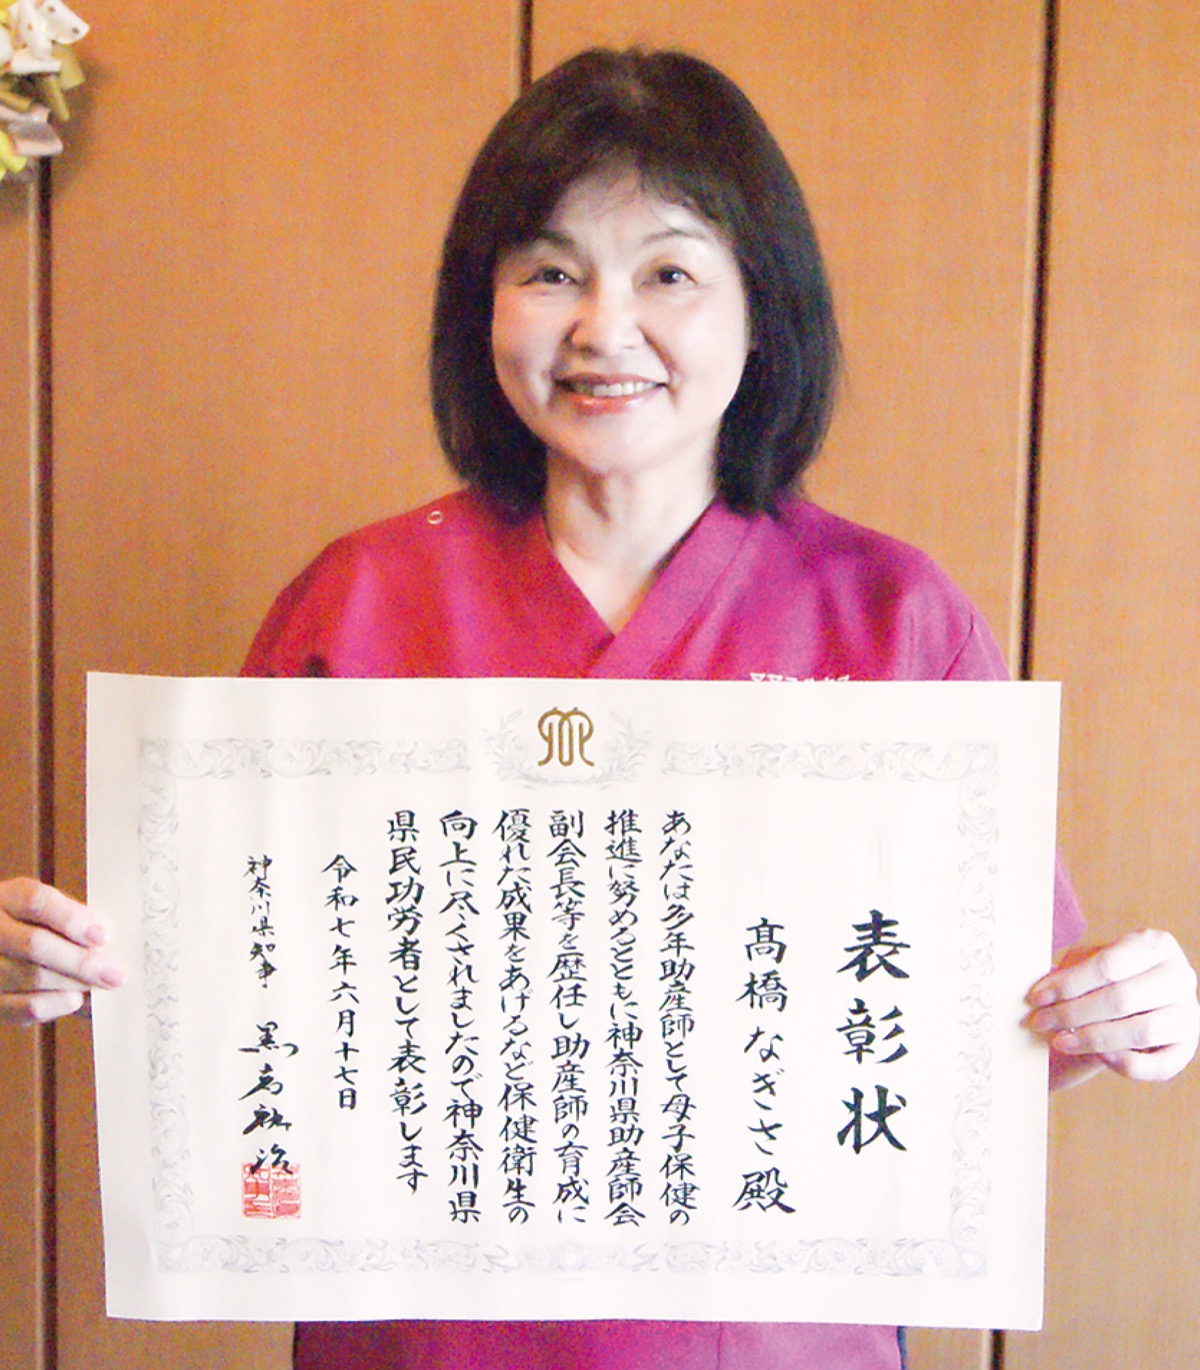 表彰状
髙橋なぎさ殿
あなたは多年助産師として母子保健の
推進に努めるとともに神奈川県助産師会
副会長等を歴任し助産師の育成に
優れた成果をあげるなど保健衛生の
向上に尽くされましたので神奈川県
県民功労者として表彰します
令和七年六月十七日
神奈川県知事 黒岩祐治